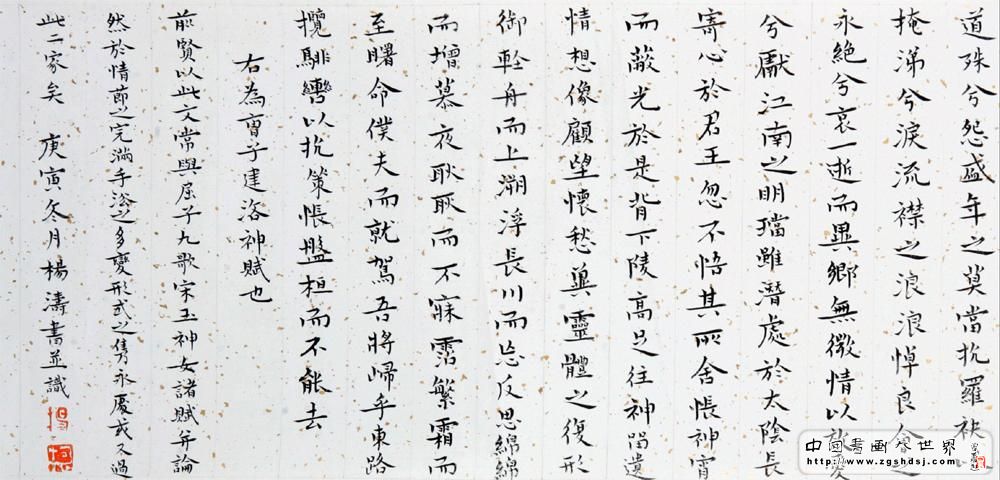 道殊兮怨盛年之莫當抗羅袂
掩涕兮淚流襟之浪浪悼良會之
永絕兮哀一逝而異鄉無微情以效愛
兮獻江南之明璫雖潛處於太陰長
寄心於君王忽不悟其所舍悵神宵
而蔽光於是背下陵高足往神留遺
情想像顧望懷愁冀靈體之復形
御輕舟而上溯浮長川而忘反思綿綿
而增慕夜耿耿而不寐霑繁霜而
至曙命僕夫而就駕吾將歸乎東路
攬騑轡以抗策悵盤桓而不能去
右為曹子建洛神賦也
前賢以此文常與屈子九歌宋玉神女諸賦并論
然於情節之完滿手法之多變形式之雋永處或又過
此二家矣 庚寅冬月楊濤書並識
中國書画世界
http://www.zgshdsj.com